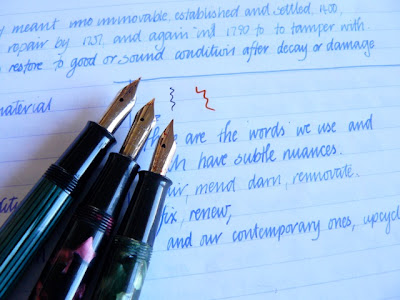 meant immovable, established and settled, 1400,
repair by 1737, and again in 1790 to to tamper with
restore to good or sound condition after decay or damage
material
are the words we use and
have subtle nuances.
mend, darn, rennovate.
fix, renew,
and our contemporary ones, upcycl